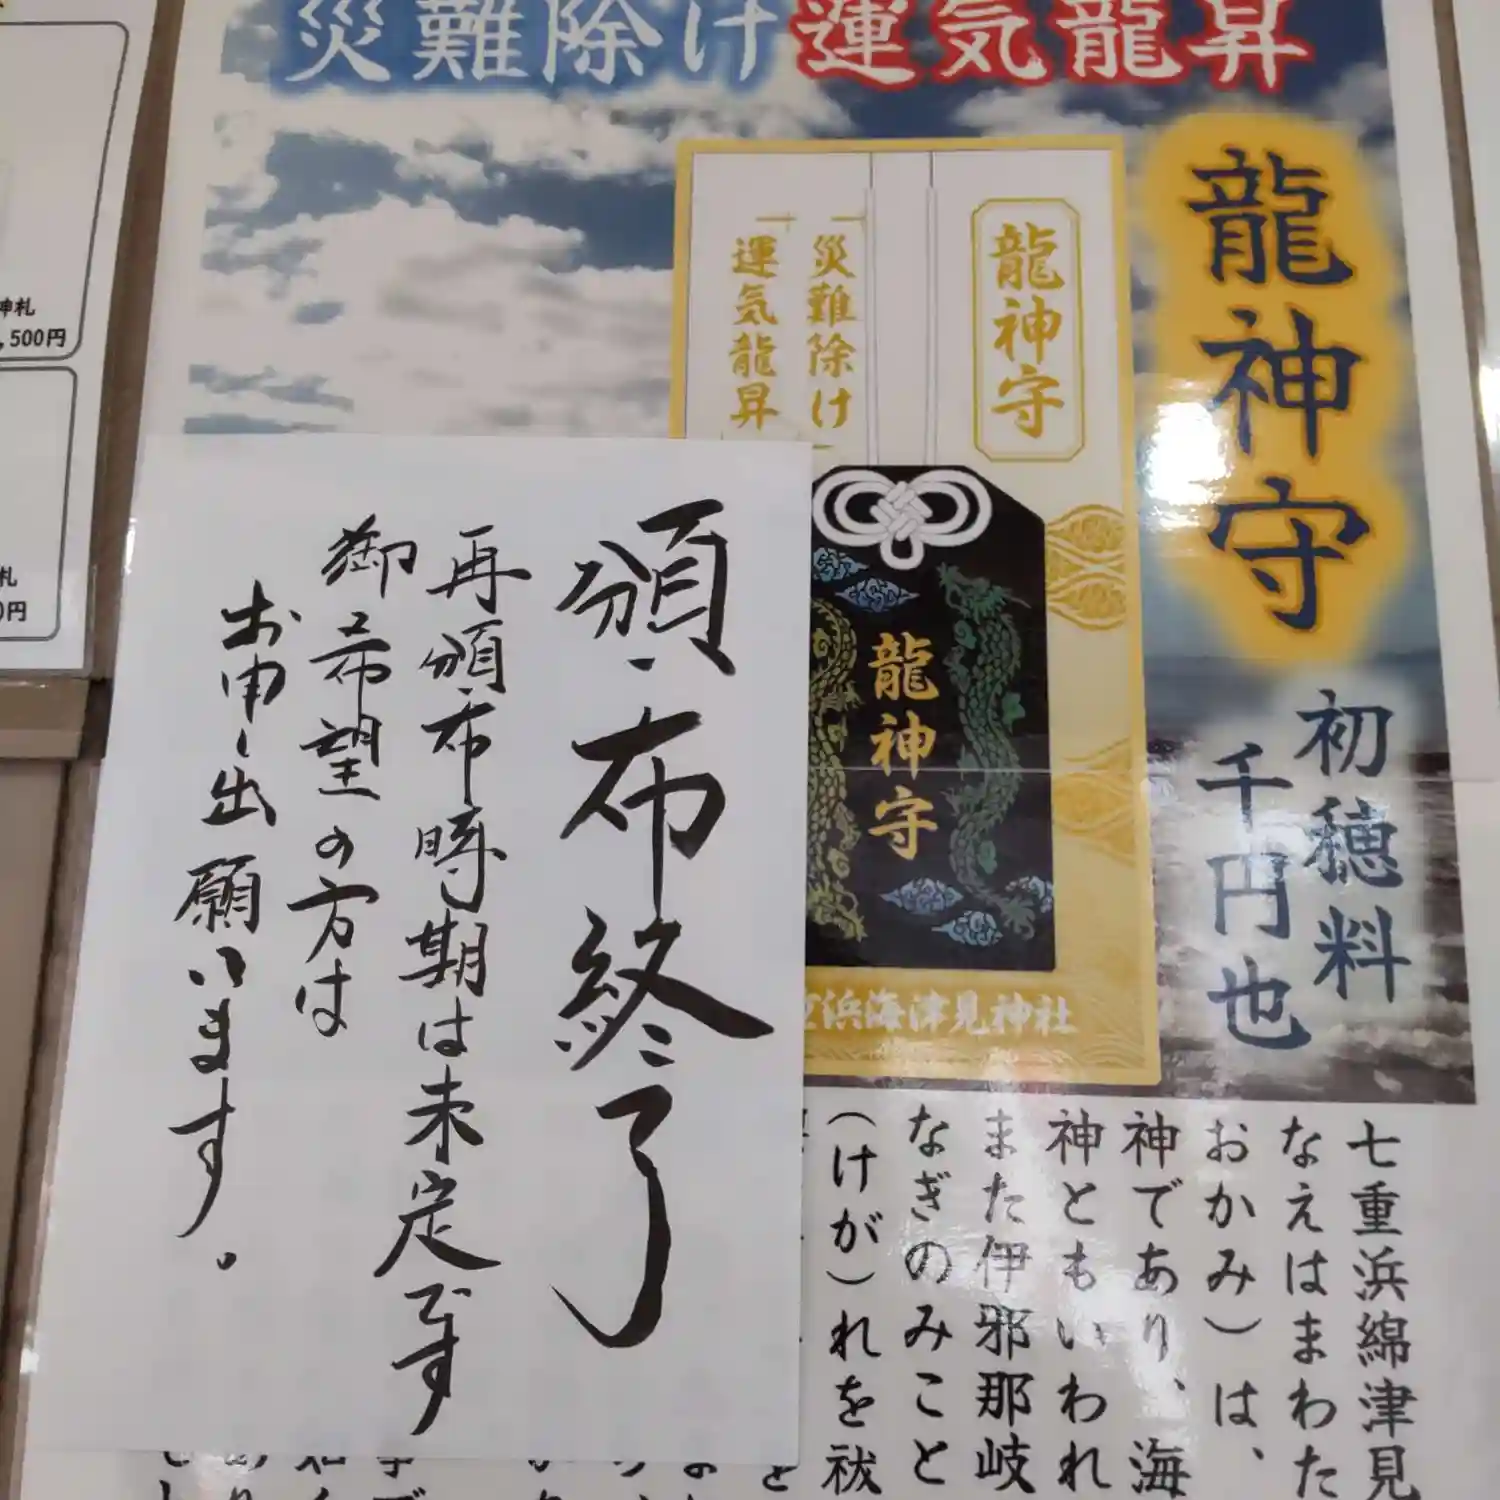 災難除け運気龍昇
龍神守
初穂料
千円也
龍神守
災難除け
運気龍昇
龍神守
浜海津見神社
頒布終了
再頒布時期は未定です
御希望の方は
お申し出願います。
七重浜綿津見
なえはまわた
おかみ)は、
神であり、海
神ともいわれ
また伊邪那岐
なぎのみこと
(けが)れを祓
神札
,500円
札
0円